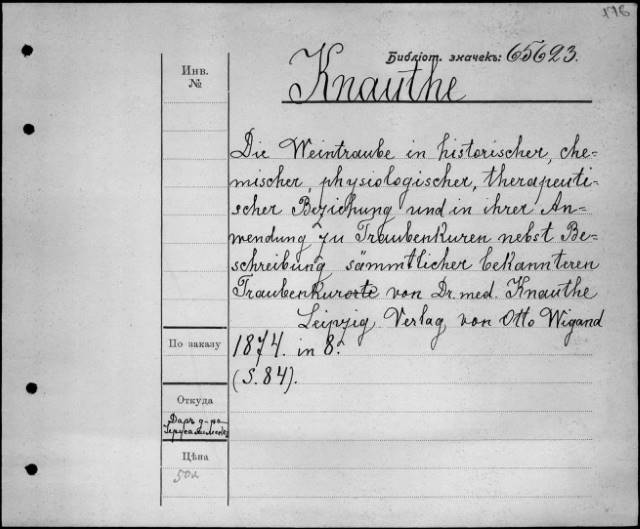 176
Библіот. значекъ: 65623.
Инв.
№
Knauthe
Die Weintraube in historischer, che-
mischer, physiologischer, therapeuti-
scher Beziehung und in ihrer An-
wendung zu Traubenkuren nebst Be-
schreibung sämmtlicher bekannteren
Traubenkurorte von Dr. med. Knauthe
Leipzig Verlag von Otto Wigand
По заказу
1874. in 8.
(S. 84).
Откуда
Даръ д-ра
Цѣна
50